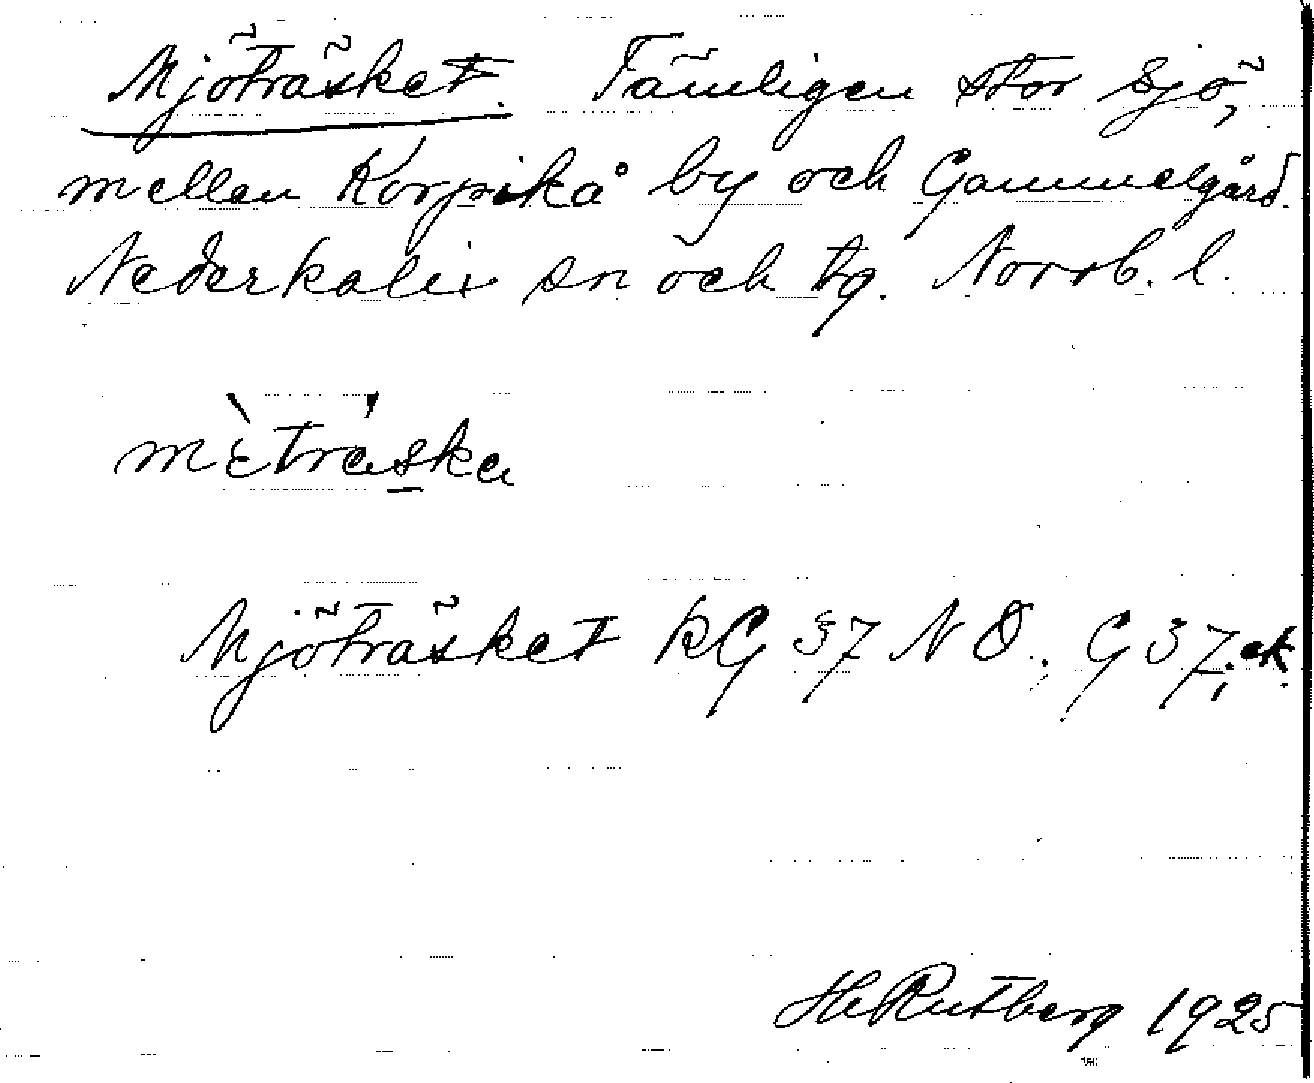 Mjöträsket. Tämligen stor sjö,
mellan Korpikå by och Gammelgård.
Nederkalix sn och tg. Norrb. l.
mètráska
Mjöträsket KG 37 NO.; G 37; ek.
H Rutberg 1925